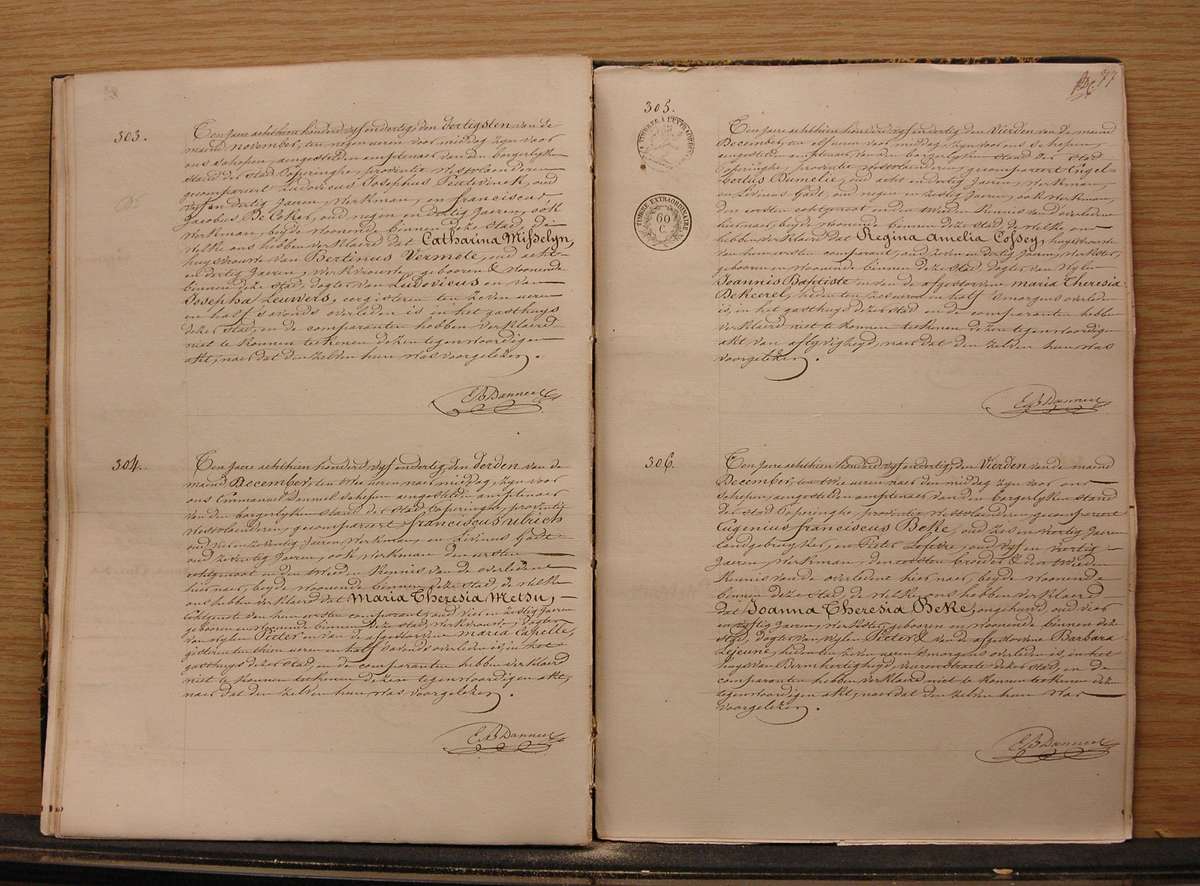 303.
Ten jaere achthien honderd vyf en dertig, den dertigsten van de
maend november, ten negen ueren voor middag zyn voor
ons schepen, aengestelden amptenaer van den borgerlyken
stand der stad Poperinghe, provintie Westvlaenderen
gecompareert Ludovicus Josephus oud
vyf en dertig Jaeren, Werkman, en franciscus
Jacobus De Coker, oud negen en dertig Jaeren, ook
Werkman, beyde woonende binnen deze stad de
Welke ons hebben verklaerd dat Catharina Misselyn,
huysvrouwe van Bertinus Vermote, oud acht
en dertig Jaeren, Werkvrouwe, gebooren & woonende
binnen deze stad, dogter van Ludovicus en van
Josepha Leuwers, eergisteren ten zeven ueren
en half s'avonds overleden is in het gasthuys
dezer stad, en de comparanten hebben verklaerd
niet te konnen teekenen dezen tegenwoordigen
akt, naer dat den zelven hun was voorgelezen.
304.
Ten jaere achthien honderd vyf en dertig, den derden van de
maend December, ten twee ueren naer middag, zyn voor
ons Emmanuel Danneel schepen aengestelden amptenaer
van den borgerlyken stand der stad Poperinghe, provintie
Westvlaenderen, gecompareert franciscus
oud vier en zeventig Jaeren, Werkman, en Livinus Gadt
oud zeventig Jaeren, ook Werkman den eersten
echtgenoot en den tweeden kennis van de overledene
hier naer, beyde woonende binnen deze stad de welke
ons hebben verklaerd dat Maria Theresia Metsu,
echtgenote van hun eersten comparant, oud vier en zestig Jaeren
gebooren en woonende binnen deze stad, werkvrouw, dogter
van wylen Pieter en van de afgestorvene maria Capelle,
gisteren ten thien ueren en half s'avonds overleden is, in het
gasthuys dezer stad, en de comparanten hebben verklaerd
niet te konnen teekenen dezen tegenwoordigen akt,
naer dat den zelven hun was voorgelezen.
77
305.
TIMBRE EXTRAORDINAIRE
60
C.
Ten jaere achthien honderd vyf en dertig den Vierden van de maend
December, ten elf ueren voor middag zyn voor ons schepen,
aengestelden amptenaer van den borgerlyken stand der stad
Poperinghe, provintie westvlaenderen, gecompareert Engel-
bertus Dumelie, oud acht en dertig Jaeren, Werkman,
en Livinus Gadt, oud negen en zestig Jaeren, ook Werkman,
den eersten echtgenoot en den tweeden kennis van de overledene
hier naer, beyde woonende binnen deze stad de welke ons
hebben verklaerd dat Regina Amelia Cossey, huysvrouwe
van hun eersten comparant, oud zeven en dertig Jaeren, Werkster,
gebooren en woonende binnen deze stad, dogter van wylen
Joannis Baptiste en van de afgestorvene maria Theresia
Bekeerel, heden ten zes ueren en half s'morgens overleden
is, in het gasthuys dezer stad en de comparanten hebben
verklaerd niet te konnen teekenen dezen tegenwoordigen
akt van aflyvigheyd, naer dat den zelven hun was
voorgelezen.
306.
Ten jaere achthien honderd vyf en dertig, den Vierden van de maend
December, ten twee ueren naer de middag zyn voor ons
schepen, aengestelden amptenaer van den borgerlyken stand
der stad Poperinghe, provintie Westvlaenderen, gecompareert
Eugenius franciscus Beke, oud zes en veertig Jaeren
landgebruyker, en Pieter Lefebre, oud vyf en veertig
Jaeren Werkman, den eersten broeder & den tweeden
kennis van de overledene hier naer, beyde woonende
binnen deze stad, de welke ons hebben verklaerd
dat Joanna Theresia Beke, ongehuwd, oud vier
en vyftig Jaeren, werkster, gebooren en woonende binnen deze
stad, dogter van wylen Pieter & van de afgestorvene Barbara
Lejeune, heden ten zeven ueren s'morgens overleden is, in het
huys van Bermhertigheyd deser stad, en de
comparanten hebben verklaerd niet te konnen teekenen deze
tegenwoordigen akt, naer dat den zelven hun was
voorgelezen.